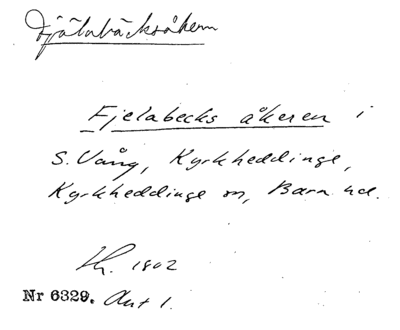 Djälabäcksåkern
Fjelabecks åkeren i
S. Vång, Kyrkheddinge,
Kyrkheddinge sn, Bara hd.
Lh. 1802
Nr 6329. Akt 1.